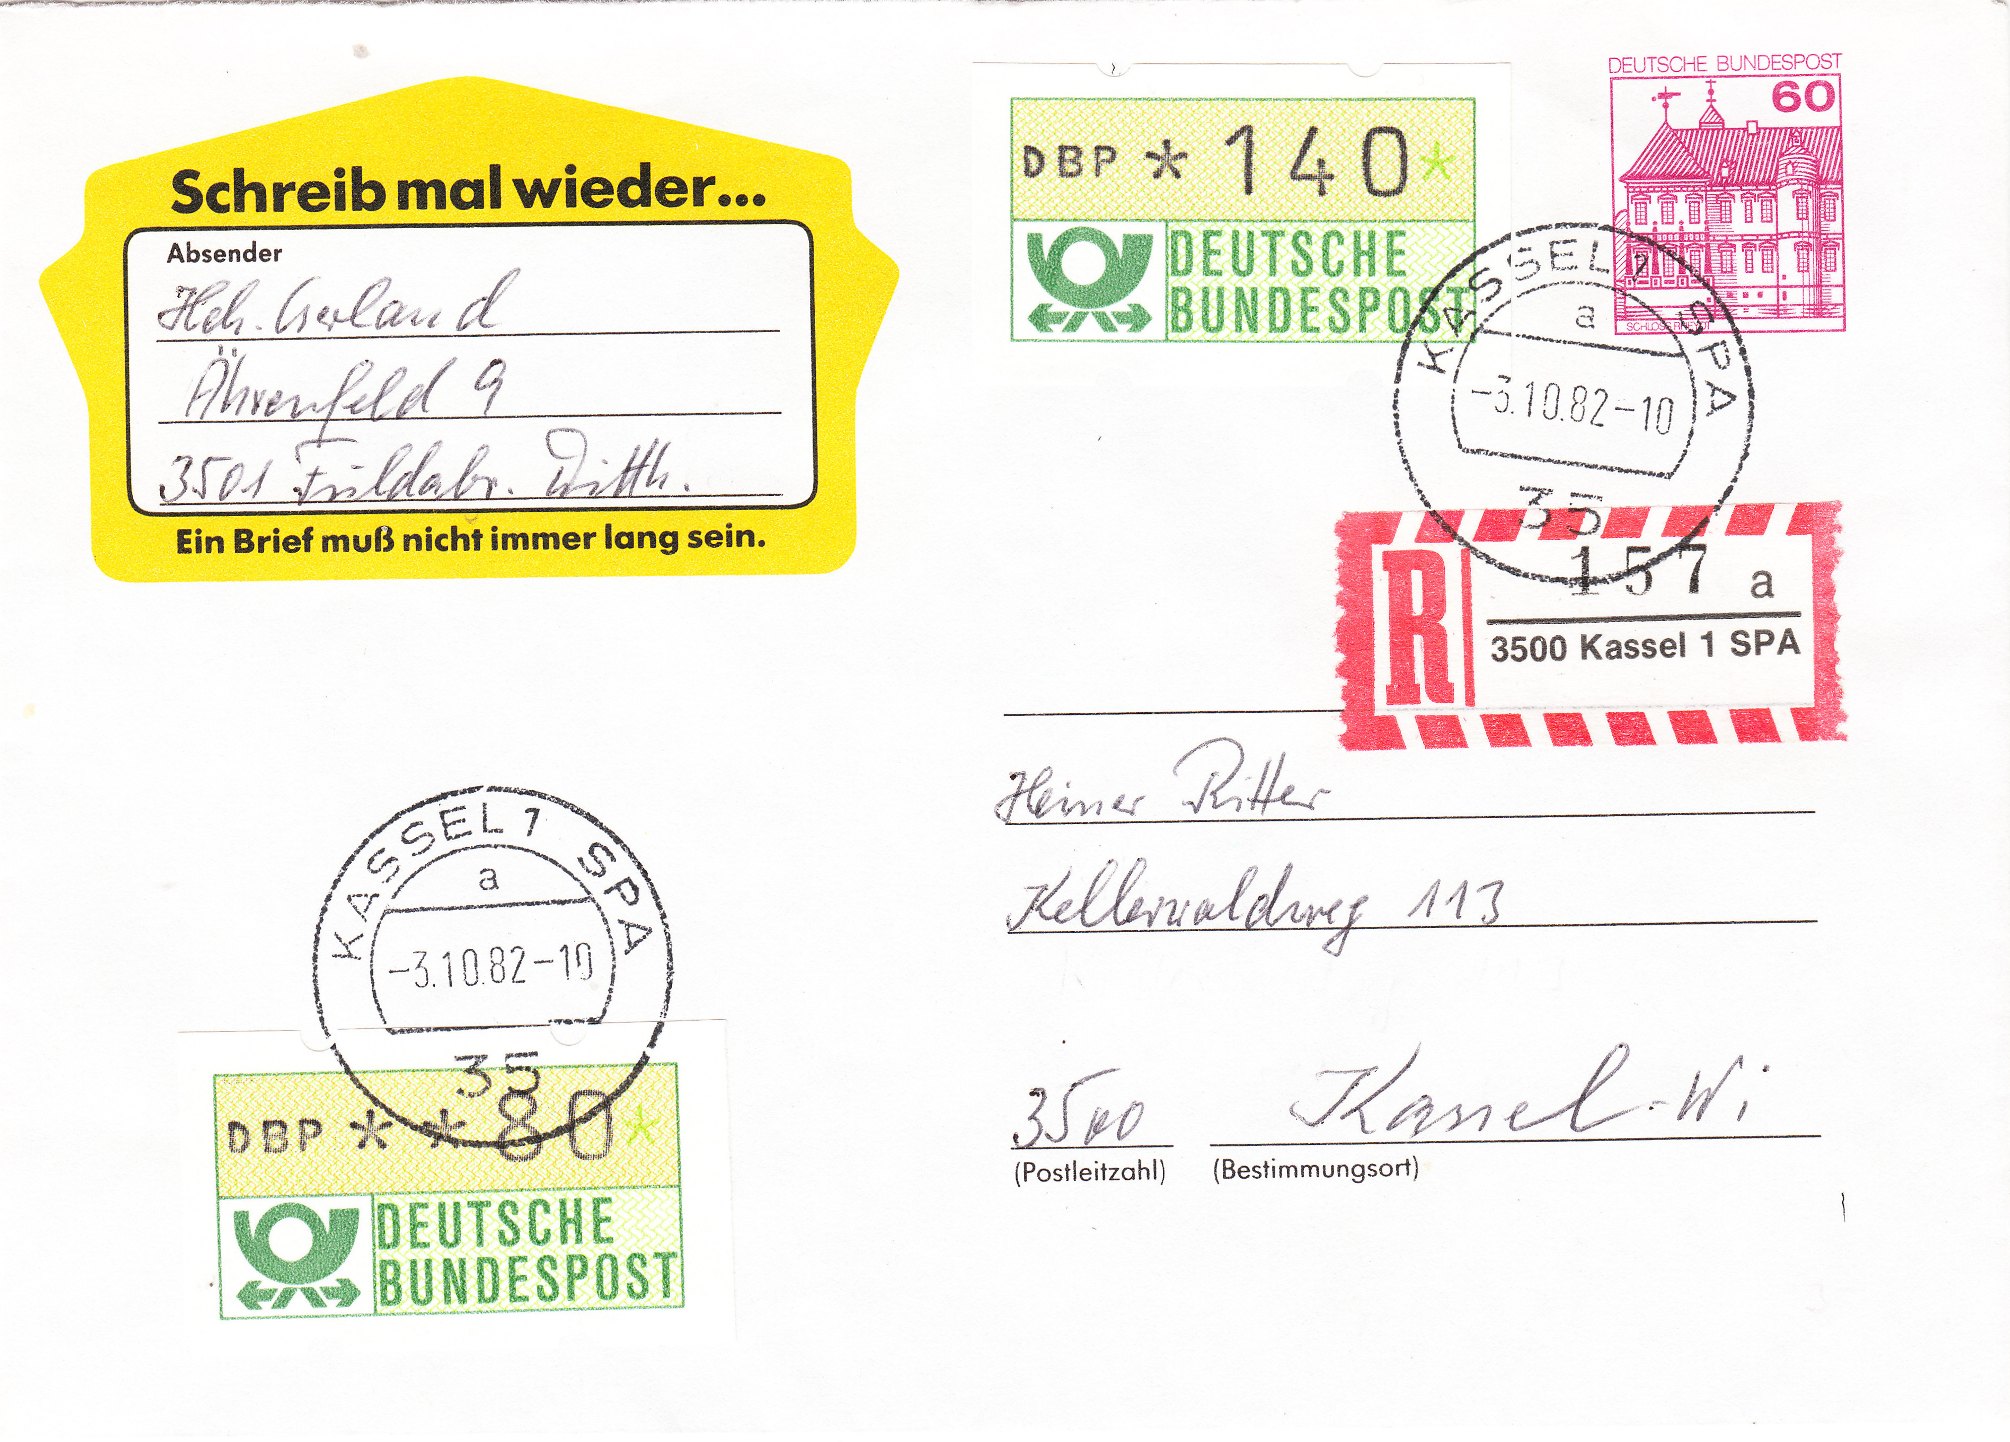 Schreib mal wieder...
Absender
Hch. Gerland
Ährenfeld 9
3501 Fuldabr. Ditth.
Ein Brief muß nicht immer lang sein.
DBP * 140 *
DEUTSCHE
BUNDESPOST
DEUTSCHE BUNDESPOST
60
SCHLOSS RHEYDT
KASSEL 1 SPA
a
-3.10.82-10
35
R
157 a
3500 Kassel 1 SPA
Heiner Ritter
Kellerwaldweg 113
3500 Kassel-Wi
(Postleitzahl) (Bestimmungsort)
KASSEL 1 SPA
a
-3.10.82-10
35
DBP * * 80 *
DEUTSCHE
BUNDESPOST